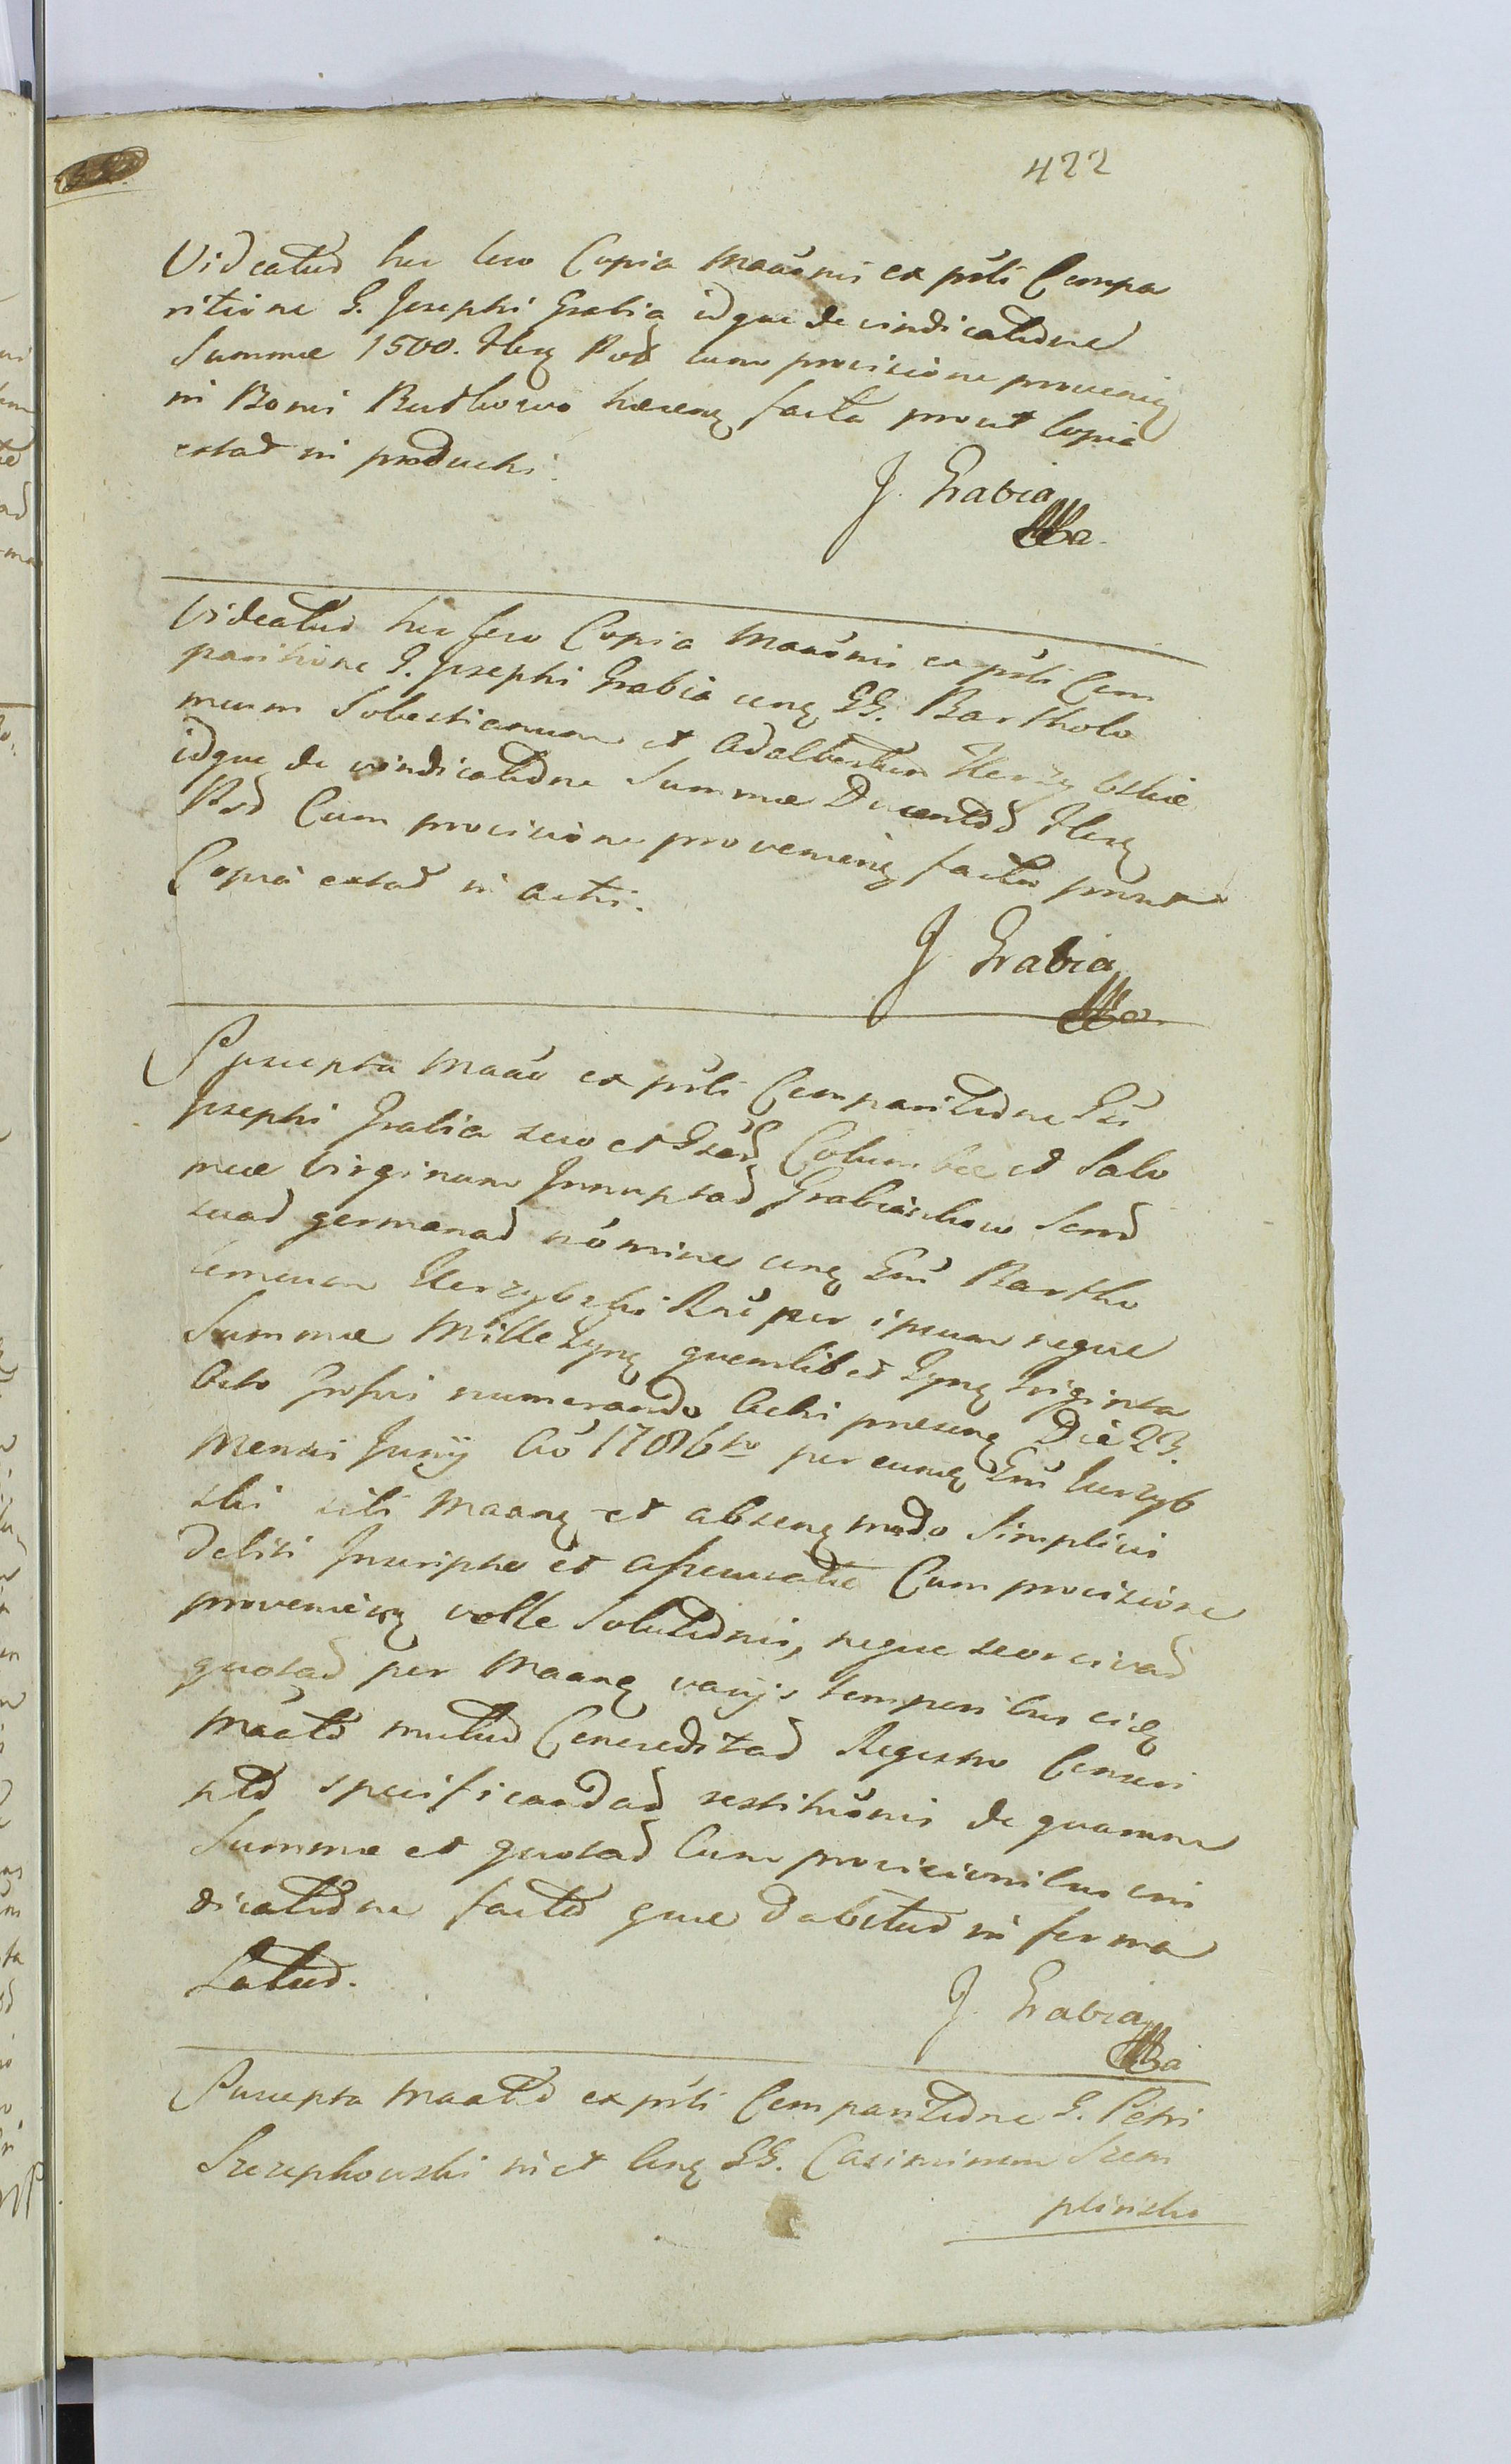 422
Videatur hic loco Copia Maaonis ex psti Compa
ritione G. Josephi Grabia idque de vindicatione
Summae 1500. flor Pol cum provisione provenien
in Bonis Rutkowo haeren facta prout Copia
extat in productis.
J. Grabia
Videatur hic loco Copia Maaonis ex psti Com
paritione G. Josephi Grabia cung GG. Bartholo
meum Sobestianum et Adalbertum Kerzybskie
idque de vindicatione Summae Ducentor flor
Pol Cum provisione provenien facta prout
Copia extat in actis.
J Grabia
Suscepta Maao ex psti Comparitione Gsi
Josephi Grabia suo et Gsar Columbae et Salo
meae Virginum Innuptar Grabianków Soror
suar germanar nomine cung Gsum Bartho
lomeum Kerzybski Rne per ipsum neque
Summae Mille Tynf quemlibet Tynf triginta
Octo grossis numerando Actis praesen Die 23.
Mensis Junij Ao 1786to per eundem Gsum Kerzyb
ski sibi Maan et absen modo Simplicis
debiti Inscripto et assecurato Cum provisione
provenien velle Solutionis, neque
quotar per Maan varijs temporibus eidem
Maato mutuo Concreditar Registro
specificandar restitutionis de quarum
Summae et quotar Cum provisionibus vin
dicatione facto quae dabitur in forma
Latius.
J. Grabia
Suscepta Maato ex psti Comparitione G. Petri
Szczepkowski in et cung GG. Casimirum Szem
plinski